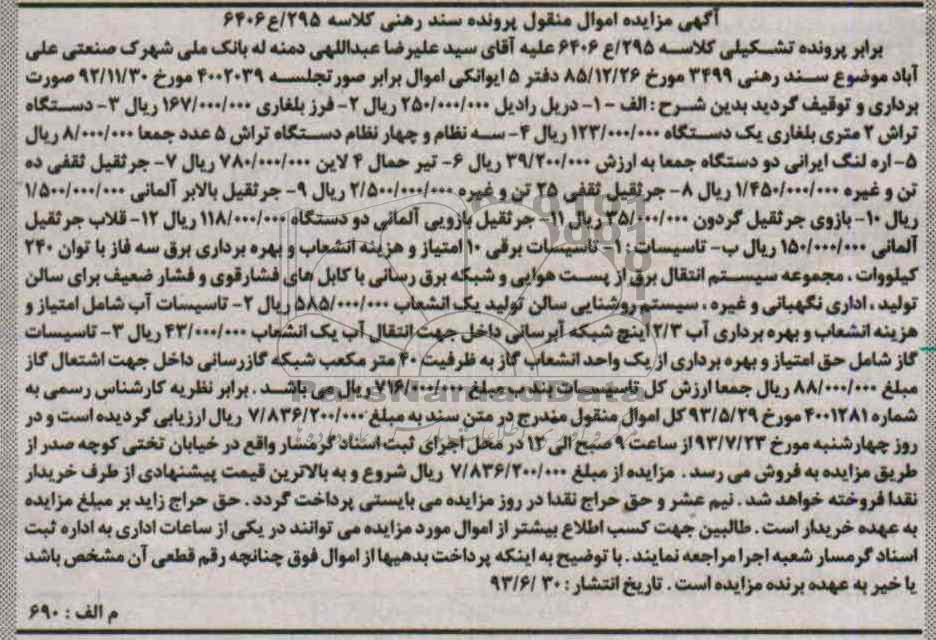 آگهی مزایده اموال منقول پرونده سند رهنی کلاسه ۲۹۵/ع۶۴۰۶
برابر پرونده تشکیلی کلاسه ۲۹۵/ع ۶۴۰۶ علیه آقای سید علیرضا عبداللهی دمنه له بانک ملی شهرک صنعتی علی
آباد موضوع سند رهنی ۳۴۹۹ مورخ ۸۵/۱۲/۲۶ دفتر ۵ ایوانکی اموال برابر صورتجلسه ۴۰۰۲۰۳۹ مورخ ۹۲/۱۱/۳۰ صورت
برداری و توقیف گردید بدین شرح : الف -۱- دریل رادیل ۲۵۰/۰۰۰/۰۰۰ ریال ۲- فرز بلغاری ۱۶۷/۰۰۰/۰۰۰ ریال ۳- دستگاه
تراش ۲ متری بلغاری یک دستگاه ۱۲۳/۰۰۰/۰۰۰ ریال ۴- سه نظام و چهار نظام دستگاه تراش ۵ عدد جمعا ۸/۰۰۰/۰۰۰ ریال
۵- اره لنگ ایرانی دو دستگاه جمعا به ارزش ۳۹/۲۰۰/۰۰۰ ریال ۶- تیر حمال ۴ لاین ۷۸۰/۰۰۰/۰۰۰ ریال ۷- جرثقیل ثقفی ده
تن و غیره ۱/۴۵۰/۰۰۰/۰۰۰ ریال ۸- جرثقیل ثقفی ۲۵ تن و غیره ۲/۵۰۰/۰۰۰/۰۰۰ ریال ۹- جرثقیل بالابر آلمانی ۱/۵۰۰/۰۰۰/۰۰۰
ریال ۱۰- بازوی جرثقیل گردون ۳۵/۰۰۰/۰۰۰ ریال ۱۱- جرثقیل بازویی آلمانی دو دستگاه ۱۱۸/۰۰۰/۰۰۰ ریال ۱۲- قلاب جرثقیل
آلمانی ۱۵۰/۰۰۰/۰۰۰ ریال ب- تاسیسات : ۱- تاسیسات برقی ۱۰ امتیاز و هزینه انشعاب و بهره برداری برق سه فاز با توان ۲۴۰
کیلووات ، مجموعه سیستم انتقال برق از پست هوایی و شبکه برق رسانی با کابل های فشارقوی و فشار ضعیف برای سالن
تولید ، اداری نگهبانی و غیره ، سیستم روشنایی سالن تولید یک انشعاب ۵۸۵/۰۰۰/۰۰۰ ریال ۲- تاسیسات آب شامل امتیاز و
هزینه انشعاب و بهره برداری آب ۳/۴ اینچ شبکه آبرسانی داخل جهت انتقال آب یک انشعاب ۴۳/۰۰۰/۰۰۰ ریال ۳- تاسیسات
گاز شامل حق امتیاز و بهره برداری از یک واحد انشعاب گاز به ظرفیت ۴۰ متر مکعب شبکه گازرسانی داخل جهت اشتعال گاز
مبلغ ۸۸/۰۰۰/۰۰۰ ریال جمعا ارزش کل تاسیسات بند ب مبلغ ۷۱۶/۰۰۰/۰۰۰ ریال می باشد . برابر نظریه کارشناس رسمی به
شماره ۴۰۰۱۲۸۱ مورخ ۹۳/۵/۲۹ کل اموال منقول مندرج در متن سند به مبلغ ۷/۸۳۶/۲۰۰/۰۰۰ ریال ارزیابی گردیده است و در
روز چهارشنبه مورخ ۹۳/۷/۲۳ از ساعت ۹ صبح الی ۱۲ در محل اجرای ثبت اسناد گرمسار واقع در خیابان تختی کوچه صدر از
طریق مزایده به فروش می رسد . مزایده از مبلغ ۷/۸۳۶/۲۰۰/۰۰۰ ریال شروع و به بالاترین قیمت پیشنهادی از طرف خریدار
نقدا فروخته خواهد شد . نیم عشر و حق حراج نقدا در روز مزایده می بایستی پرداخت گردد . حق حراج زاید بر مبلغ مزایده
به عهده خریدار است . طالبین جهت کسب اطلاع بیشتر از اموال مورد مزایده می توانند در یکی از ساعات اداری به اداره ثبت
اسناد گرمسار شعبه اجرا مراجعه نمایند . با توضیح به اینکه پرداخت بدهیها از اموال فوق چنانچه رقم قطعی آن مشخص باشد
یا خیر به عهده برنده مزایده است . تاریخ انتشار : ۹۳/۶/۳۰
م الف : ۶۹۰
ParsNamadData